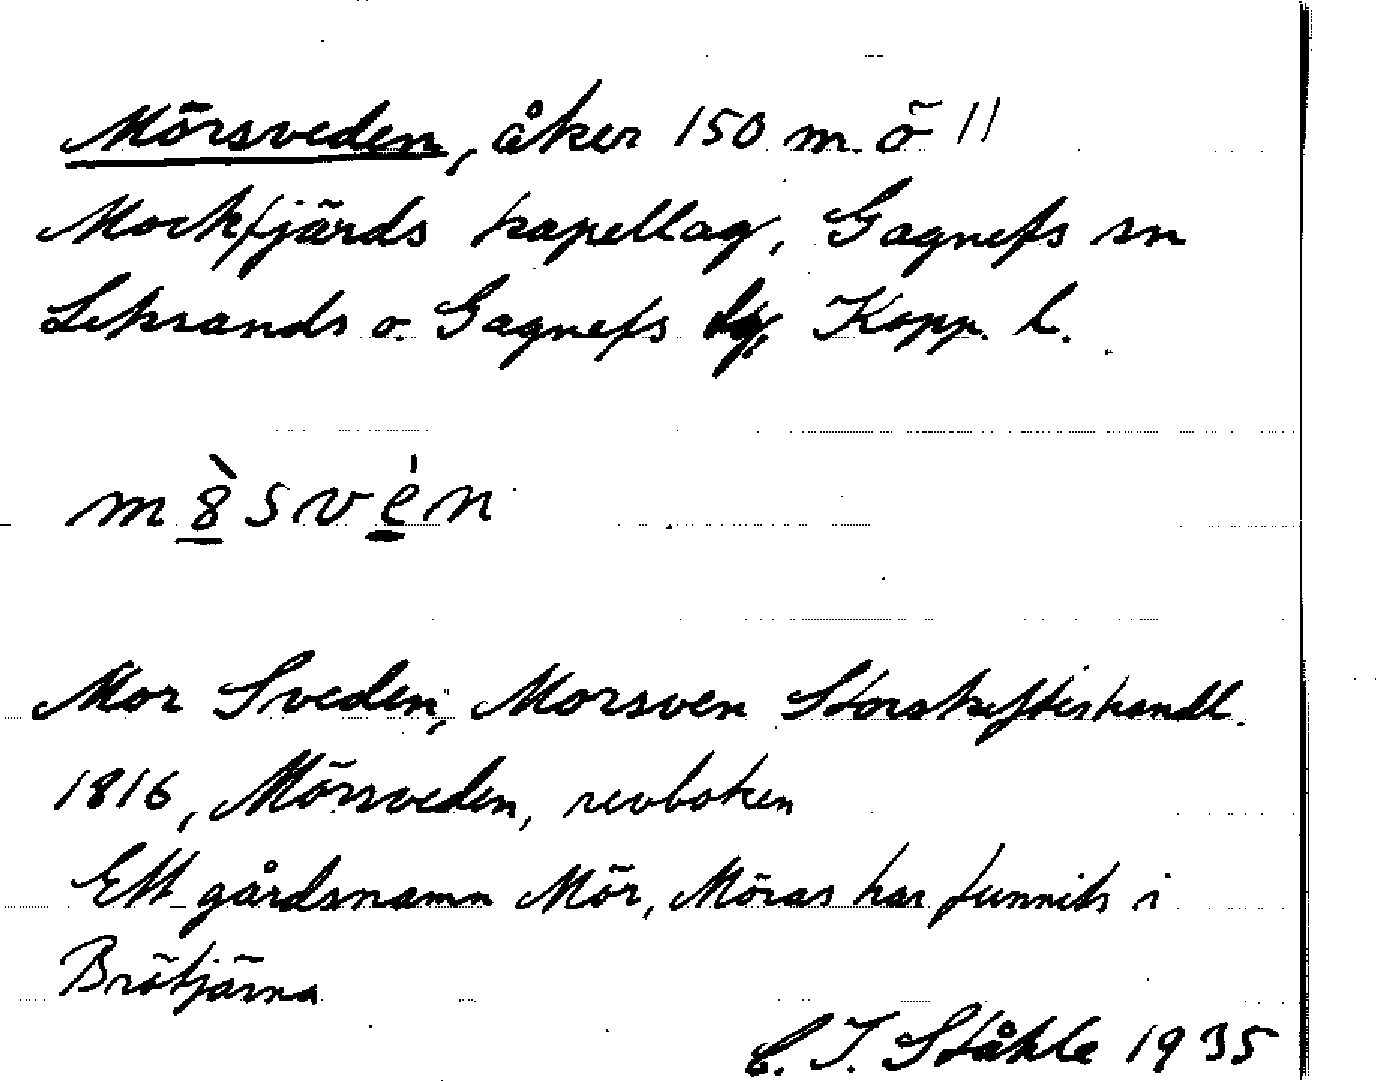 Mörsveden, åker 150 m ö 11
Mockfjärds kapellag, Gagnefs sn
Leksands o. Gagnefs tg, Kopp. l.
m8̀svėn
Mor Sveden, Morsven Storskifteshandl.
1816, Mörsveden, revboken
Ett gårdsnamn Mör, Möras har funnits i
Brötjärna
C. I. Ståhle 1935